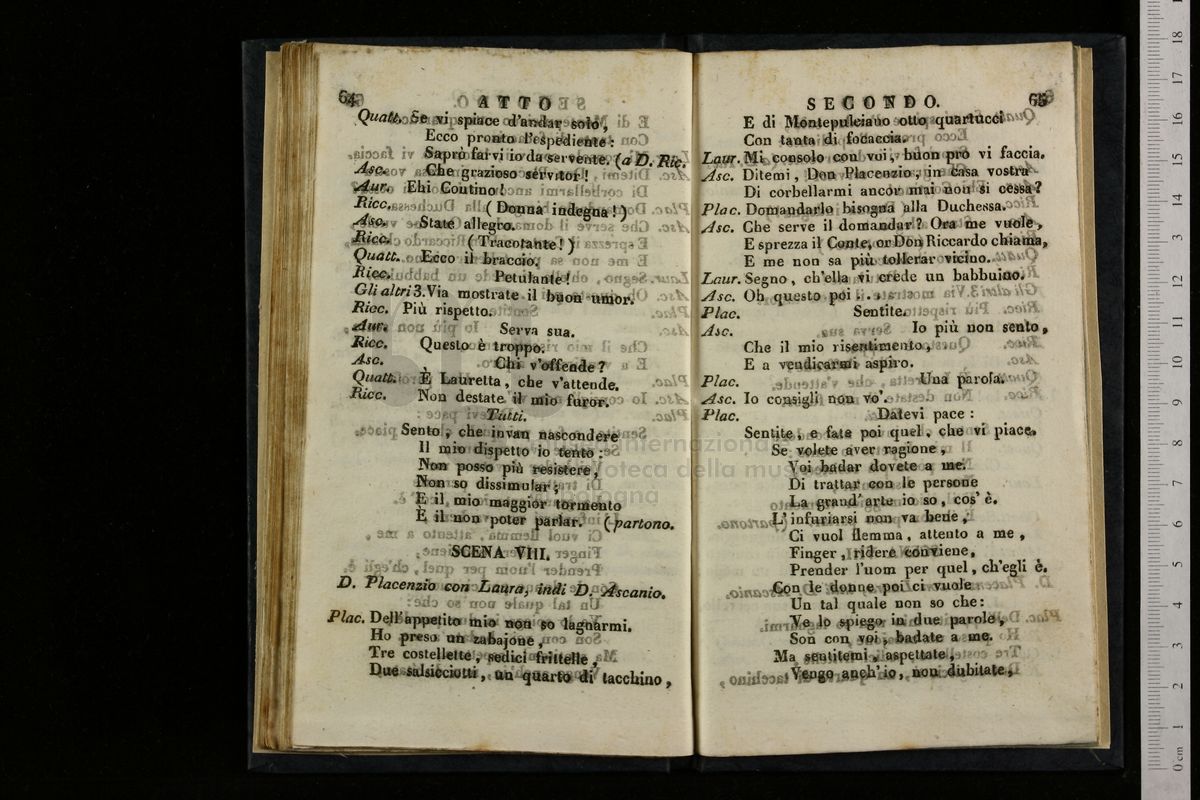 64 ATTO
Quatt. Se vi spiace d'andar solo,
Ecco pronto l'espediente:
Saprò farvi io da servente. (a D. Ric.
Asc. Che grazioso servitor!
Aur. Ehi Contino!
Ricc. (Donna indegna!)
Asc. State allegro.
Ricc. (Tracotante!)
Quatt. Ecco il braccio.
Ricc. Petulante!
Gli altri 3. Via mostrate il buon umor.
Ricc. Più rispetto.
Aur. Serva sua.
Ricc. Questo è troppo.
Asc. Chi v'offende?
Quatt. È Lauretta, che v'attende.
Ricc. Non destate il mio furor.
Tutti.
Sento, che invan nascondere
Il mio dispetto io tento:
Non posso più resistere,
Non so dissimular;
E il mio maggior tormento
È il non poter parlar. (partono.
SCENA VIII.
D. Placenzio con Laura, indi D. Ascanio.
Plac. Dell'appetito mio non so lagnarmi.
Ho preso un zabajone,
Tre costellette, sedici frittelle,
Due salsicciotti, un quarto di tacchino,
SECONDO. 65
E di Montepulciano otto quartucci
Con tanta di focaccia.
Laur. Mi consolo con voi, buon prò vi faccia.
Asc. Ditemi, Don Placenzio, in casa vostra
Di corbellarmi ancor mai non si cessa?
Plac. Domandarlo bisogna alla Duchessa.
Asc. Che serve il domandar? Ora me vuole,
E sprezza il Conte, or Don Riccardo chiama,
E me non sa più tollerar vicino.
Laur. Segno, ch'ella vi crede un babbuino.
Asc. Oh questo poi ...
Plac. Sentite.
Asc. Io più non sento,
Che il mio risentimento,
E a vendicarmi aspiro.
Plac. Una parola.
Asc. Io consigli non vo'.
Plac. Datevi pace:
Sentite, e fate poi quel, che vi piace.
Se volete aver ragione,
Voi badar dovete a me.
Di trattar con le persone
La grand'arte io so, cos'è.
L'infuriarsi non va bene,
Ci vuol flemma, attento a me,
Finger, ridere conviene,
Prender l'uom per quel, ch'egli è.
Con le donne poi ci vuole
Un tal quale non so che:
Ve lo spiego in due parole,
Son con voi, badate a me.
Ma sentitemi, aspettate,
Vengo anch'io, non dubitate,